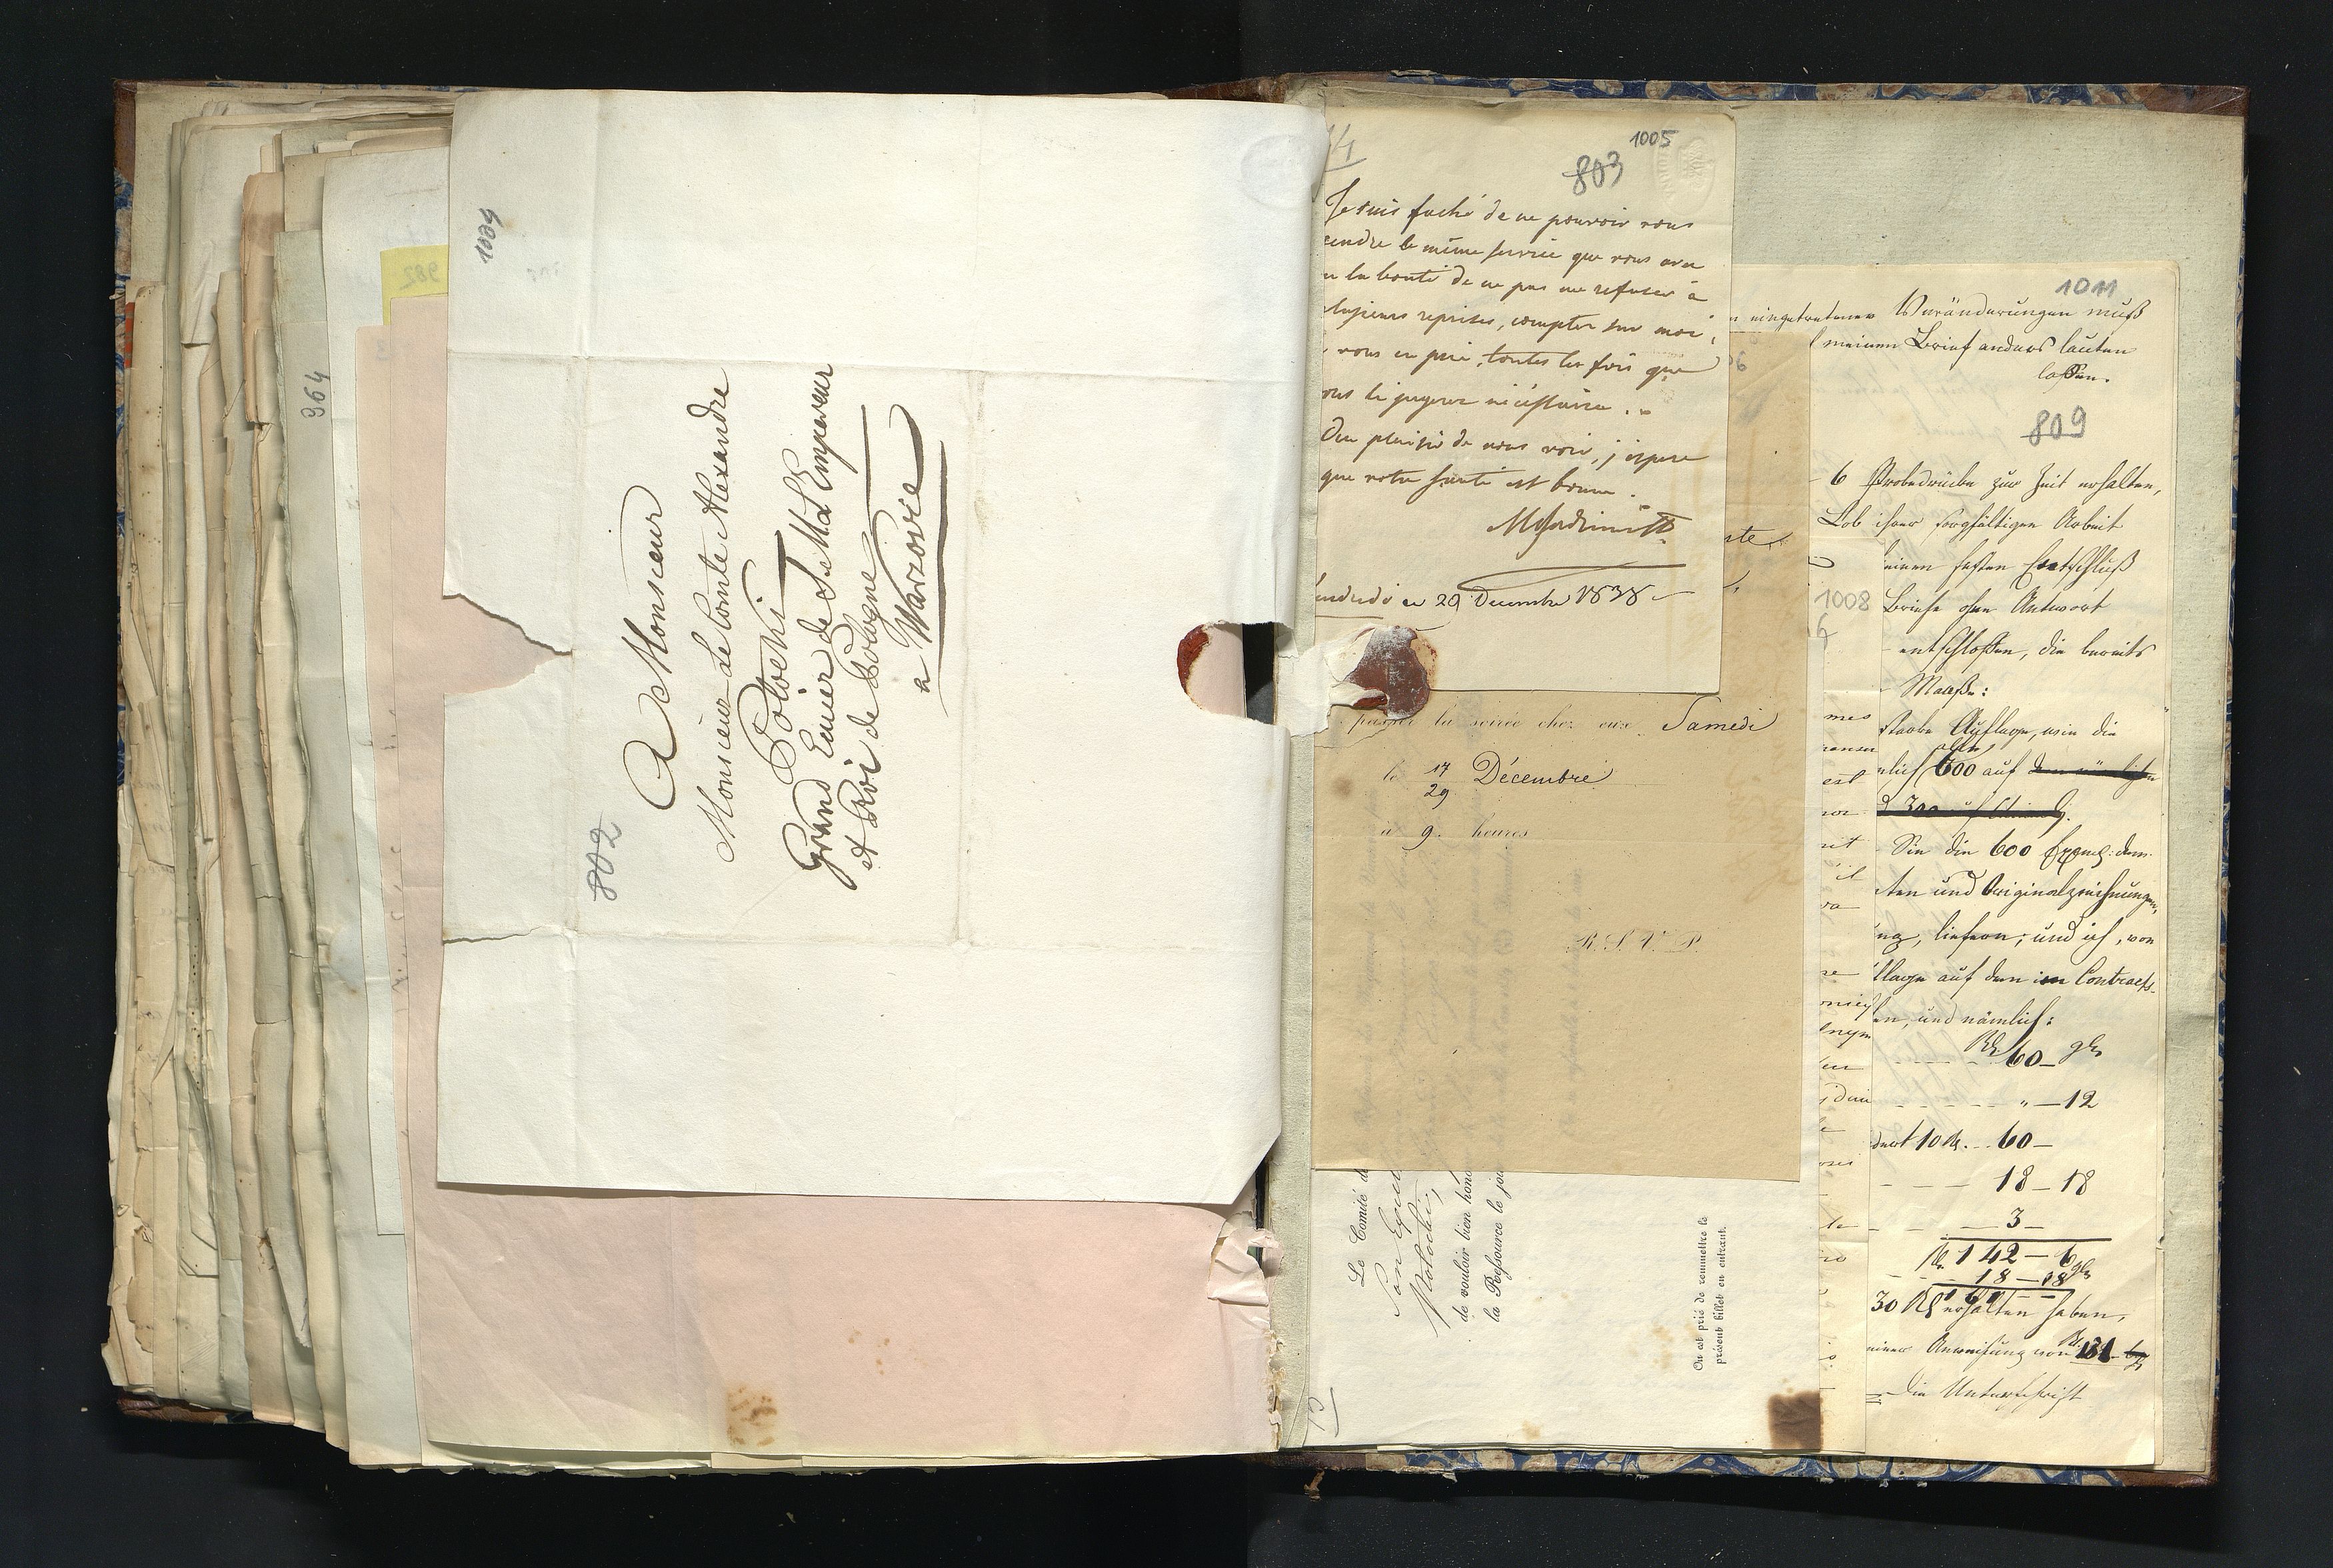 1004
964
982
802
A Monsieur
Monsieur Le Comte Alexandre
Potocki
Grand Ecuier de Sa Mté L'Empereur
et Roi de Pologne
a Warzovie
1005
803
Je suis faché de ne pouvoir vous
endre le même service que vous avez
u la bonté de ne pas me refuser à
plusieurs reprises, compter sur moi,
vous en prie, toutes les fois que
ous le jugerez nécéssaire.
Au plaisir de vous voir, j'espere
que votre santé est bonne.
ce 29 Decembre 1838
passer la soirée chez eux Samedi
le 17/29 Décembre
à 9. heures
R. S. V. P.
Le Comité d
Son Excel
Potocki,
de vouloir bien hono
la Ressource le jou
On est prié de remettre le
présent billet en entrant.
1008
1011
n eingetretener Veränderungen muß
meinen Brief anders lauten
laßen.
809
6 Probedrücke zur Zeit erhalten,
Lob ihrer sorgfältigen Arbeit
einen festen Entschluß
Briefe ohne Antwort
entschloßen, die bereits
Maaße:
starke Auflage, wie die
600 auf
Sie die 600 Exempl: dem
ten und Originalzeichnungen,
ng, liefern; und ich, von
llage auf dem im Contracts-
en, und nämlich:
Rl 60 — gls
" — 12
dert 10 Rl. 60 —
18 — 18
3 —
Rl. 142 — 6
18 — 18 gls
30 Rl erhalten haben,
einer Anweisung von Rl. 131
Die Unterschrift